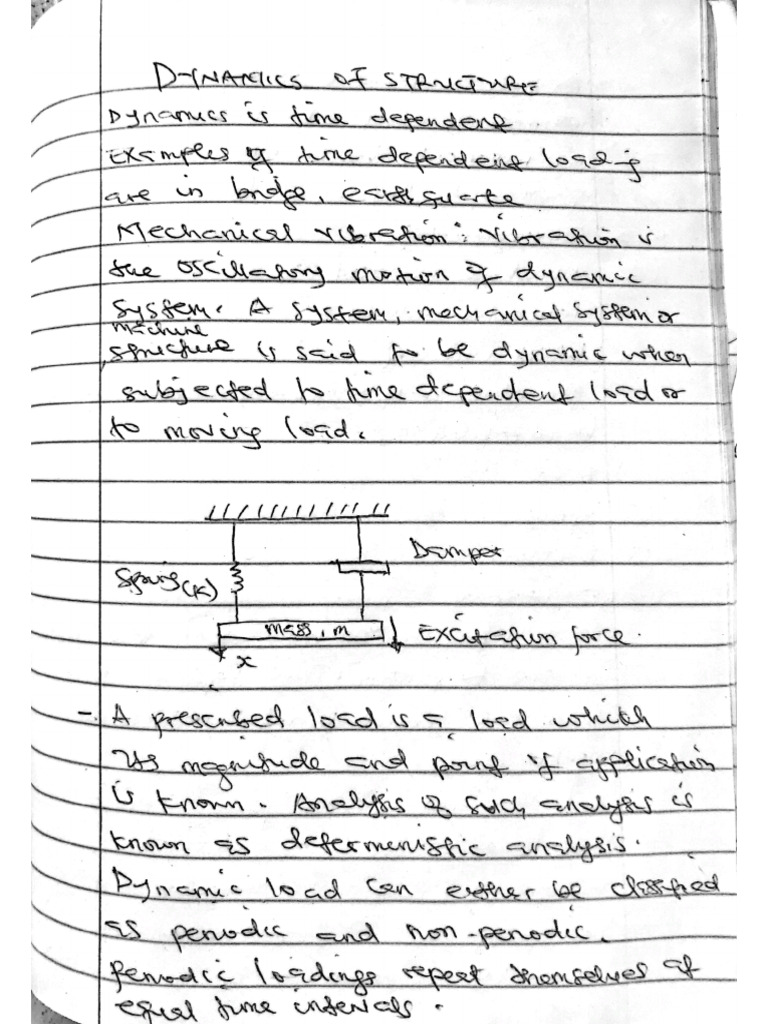 DYNAMICS OF STRUCTURE
Dynamics is time dependent
Examples of time dependent loading
are in bridge, earthquake
Mechanical vibration: vibration is
the oscillatory motion of dynamic
system. A system, mechanical system or
machine
structure is said to be dynamic when
subjected to time dependent load or
to moving load.
Damper
Spring (K)
mass, m
Excitation force.
x
- A prescribed load is a load which
its magnitude and point of application
is known. Analysis of such analysis is
known as determenistic analysis.
Dynamic load can either be classified
as periodic and non-periodic.
Periodic loadings repeat themselves at
equal time intervals.